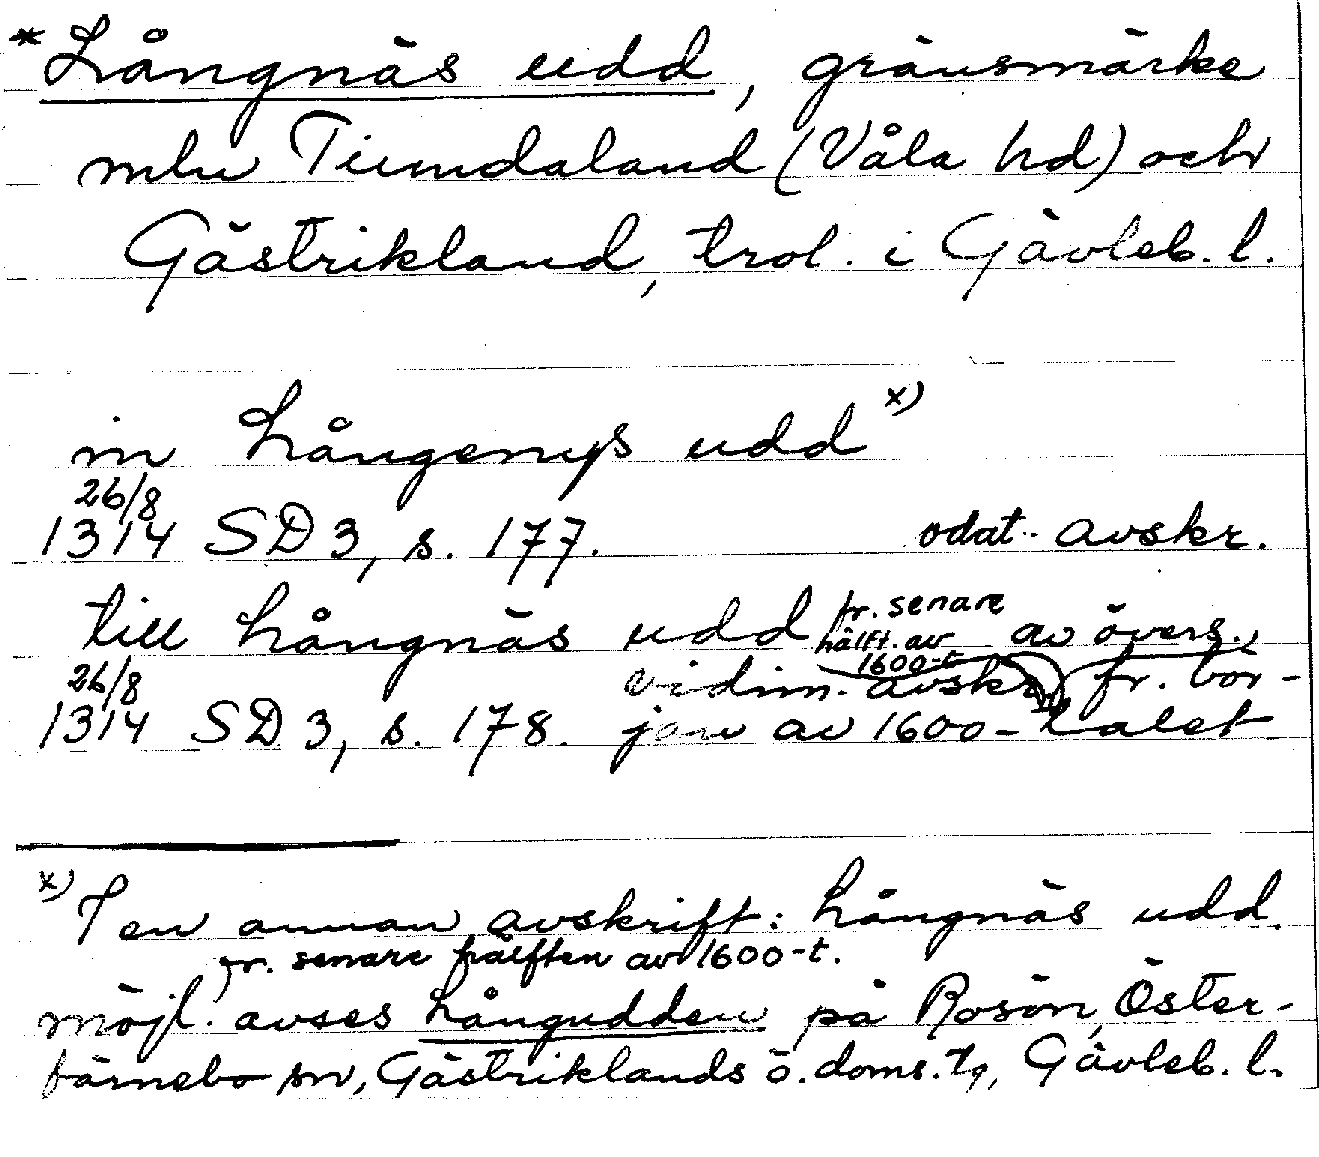 *Långnäs udd, gränsmärke
mln Tiundaland (Våla hd) och
Gästrikland, trol. i Gävleb. l.
in Långenys udd x)
26/8
1314 SD 3, s. 177. odat. avskr.
fr. senare
till Långnäs udd hälft. av av övers.,
1600-t
26/8 vidim. avskr. fr. bör-
1314 SD 3, s. 178. jan av 1600-talet
x) I en annan avskrift: Långnäs udd.
fr. senare hälften av 1600-t.
möjl. avses Långudden på Rosön, Öster-
färnebo sn, Gästriklands ö. doms. tg, Gävleb. l.